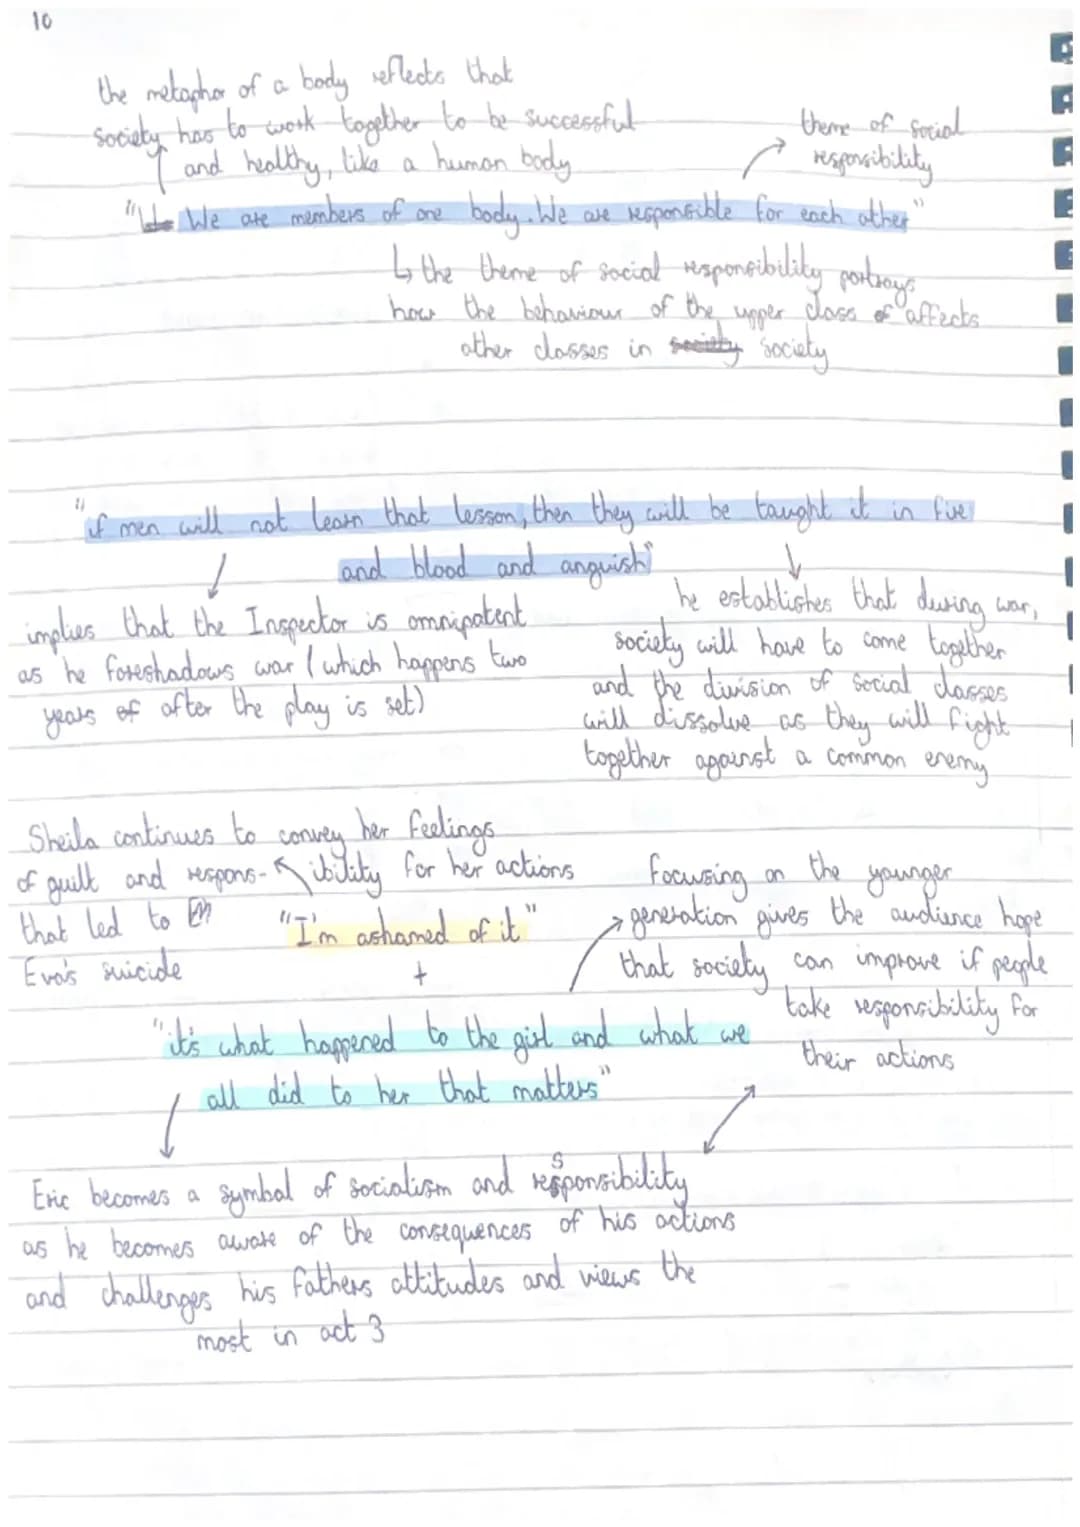 10
the metaphor of a body reflects that
society has to work together to be successful
and healthy, like a human body
theme of social
responsibility
"We are members of one body. We are responsible for each other"
↳ the theme of social responsibility portrays
how the behaviour of the upper class of affects
other classes in society society
"if men will not learn that lesson, then they will be taught it in fire
and blood and anguish"
implies that the Inspector is omnipotent
as he foreshadows war (which happens two
years of after the play is set)
he establishes that during war,
society will have to come together
and the division of social classes
will dissolve as they will fight
together against a common enemy
Sheila continues to convey her feelings
of guilt and respons-ibility for her actions
that led to
Eva's suicide
"I'm ashamed of it"
+
focusing on the younger
generation gives the audience hope
that society can improve if people
take responsibility for
their actions
"it's what happened to the girl and what we
all did to her that matters"
Eric becomes a symbol of socialism and responsibility
as he becomes aware of the consequences of his actions
and challenges his fathers attitudes and views the
most in act 3